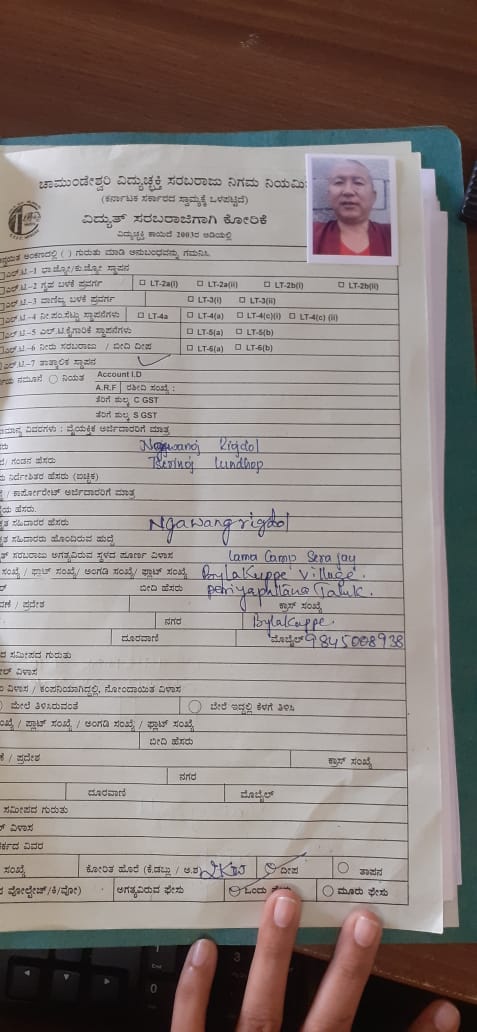 ಚಾಮುಂಡೇಶ್ವರಿ ವಿದ್ಯುಚ್ಛಕ್ತಿ ಸರಬರಾಜು ನಿಗಮ ನಿಯಮಿ
(ಕರ್ನಾಟಕ ಸರ್ಕಾರದ ಸ್ವಾಮ್ಯಕ್ಕೆ ಒಳಪಟ್ಟಿದೆ)
ವಿದ್ಯುತ್ ಸರಬರಾಜಿಗಾಗಿ ಕೋರಿಕೆ
ವಿದ್ಯುಚ್ಛಕ್ತಿ ಕಾಯಿದೆ 2003ರ ಅಡಿಯಲ್ಲಿ
ಅಂಕಣದಲ್ಲಿ ( ) ಗುರುತು ಮಾಡಿ ಅನುಬಂಧವನ್ನು ಗಮನಿಸಿ
ಎಲ್.ಟಿ.-1 ಭಾ.ಜ್ಯೋ/ಕು.ಜ್ಯೋ ಸ್ಥಾಪನ
ಎಲ್.ಟಿ.-2 ಗೃಹ ಬಳಕೆ ಪ್ರವರ್ಗ LT-2a(i) LT-2a(ii) LT-2b(i) LT-2b(ii)
ಎಲ್.ಟಿ.-3 ವಾಣಿಜ್ಯ ಬಳಕೆ ಪ್ರವರ್ಗ LT-3(i) LT-3(ii)
ಎಲ್.ಟಿ.-4 ನೀ.ಪಂ.ಸೆಟ್ಟು ಸ್ಥಾಪನೆಗಳು LT-4a LT-4(a) LT-4(c)(i) LT-4(c) (ii)
ಎಲ್.ಟಿ.-5 ಎಲ್.ಟಿ.ಕೈಗಾರಿಕೆ ಸ್ಥಾಪನೆಗಳು LT-5(a) LT-5(b)
ಎಲ್.ಟಿ.-6 ನೀರು ಸರಬರಾಜು / ಬೀದಿ ದೀಪ LT-6(a) LT-6(b)
ಎಲ್.ಟಿ.-7 ತಾತ್ಕಾಲಿಕ ಸ್ಥಾಪನ
ನಮೂನೆ ನಿಯತ Account I.D
A.R.F ರಶೀದಿ ಸಂಖ್ಯೆ :
ತೆರಿಗೆ ಶುಲ್ಕ C GST
ತೆರಿಗೆ ಶುಲ್ಕ S GST
ವಿವರಗಳು : ವೈಯಕ್ತಿಕ ಅರ್ಜಿದಾರರಿಗೆ ಮಾತ್ರ
Ngawang Rigdol
/ ಗಂಡನ ಹೆಸರು Tsering Lundhop
ನಿರ್ದೇಶಿತರ ಹೆಸರು (ಐಚ್ಛಿಕ)
/ ಕಾರ್ಪೋರೇಟ್ ಅರ್ಜಿದಾರರಿಗೆ ಮಾತ್ರ
ಹೆಸರು.
ಸಹಿದಾರರ ಹೆಸರು Ngawang rigdol
ಸಹಿದಾರರು ಹೊಂದಿರುವ ಹುದ್ದೆ
ಸರಬರಾಜು ಅಗತ್ಯವಿರುವ ಸ್ಥಳದ ಪೂರ್ಣ ವಿಳಾಸ Lama Camp Sera Jay
ಸಂಖ್ಯೆ / ಫ್ಲಾಟ್ ಸಂಖ್ಯೆ/ ಅಂಗಡಿ ಸಂಖ್ಯೆ/ ಫ್ಲಾಟ್ ಸಂಖ್ಯೆ Bylakuppe village.
ಬೀದಿ ಹೆಸರು periyapattana Taluk.
/ ಪ್ರದೇಶ ಕ್ರಾಸ್ ಸಂಖ್ಯೆ
ನಗರ Bylakuppe.
ದೂರವಾಣಿ ಮೊಬೈಲ್ 9845008938
ಸಮೀಪದ ಗುರುತು
ವಿಳಾಸ
ವಿಳಾಸ / ಕಂಪನಿಯಾಗಿದ್ದಲ್ಲಿ, ನೋಂದಾಯಿತ ವಿಳಾಸ
ಮೇಲೆ ತಿಳಿಸಿರುವಂತೆ ಬೇರೆ ಇದ್ದಲ್ಲಿ ಕೆಳಗೆ ತಿಳಿಸಿ
/ ಪ್ಲಾಟ್ ಸಂಖ್ಯೆ / ಅಂಗಡಿ ಸಂಖ್ಯೆ / ಫ್ಲಾಟ್ ಸಂಖ್ಯೆ
ಬೀದಿ ಹೆಸರು
/ ಪ್ರದೇಶ ಕ್ರಾಸ್ ಸಂಖ್ಯೆ
ನಗರ
ದೂರವಾಣಿ ಮೊಬೈಲ್
ಸಮೀಪದ ಗುರುತು
ವಿಳಾಸ
ವಿವರ
ಸಂಖ್ಯೆ ಕೋರಿತ ಹೊರೆ (ಕೆ.ಡಬ್ಲು / ಅ.ಶ) 2KW ದೀಪ ತಾಪನ
ವೋಲ್ಟೇಜ್/ಕಿ/ವೋ) ಅಗತ್ಯವಿರುವ ಫೇಸು ಒಂದು ಮೂರು ಫೇಸು
3
0